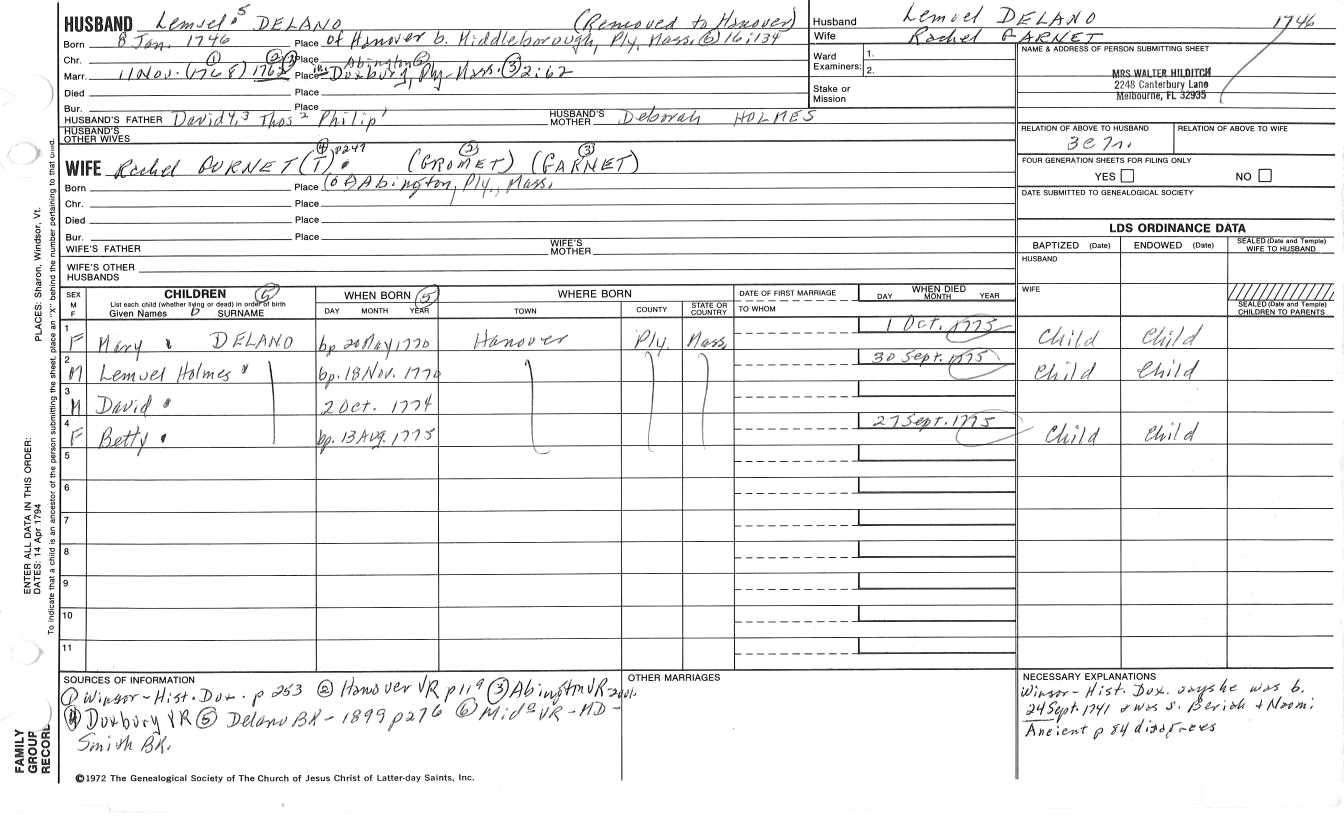 HUSBAND Lemuel 5 DELANO (Removed to Hanover)
Born 8 Jan. 1746 Place of Hanover b. Middleborough, Ply, Mass. (6) 16:134
Chr. Place Abington
Marr. 11 Nov. (1768) 1762 Place Duxbury, Ply-Mass. (3) 2:62
Died Place
Bur. Place
HUSBAND'S FATHER David 4, 3 Thos 2 Philip 1 HUSBAND'S MOTHER Deborah HOLMES
HUSBAND'S OTHER WIVES
(4) p247
WIFE Rachel BURNET (T) (2) (GROMET) (3) (GARNET)
Born Place (of) Abington, Ply., Mass.
Chr. Place
Died Place
Bur. Place
WIFE'S FATHER WIFE'S MOTHER
WIFE'S OTHER HUSBANDS
Husband Lemuel DELANO 1746
Wife Rachel GARNET
Ward Examiners: 1.
2.
Stake or Mission
NAME & ADDRESS OF PERSON SUBMITTING SHEET
MRS WALTER HILDITCH
2248 Canterbury Lane
Melbourne, FL 32935
RELATION OF ABOVE TO HUSBAND RELATION OF ABOVE TO WIFE
3C7r.
FOUR GENERATION SHEETS FOR FILING ONLY
YES NO
DATE SUBMITTED TO GENEALOGICAL SOCIETY
LDS ORDINANCE DATA
BAPTIZED (Date) ENDOWED (Date) SEALED (Date and Temple) WIFE TO HUSBAND
HUSBAND
WIFE
SEALED (Date and Temple) CHILDREN TO PARENTS
SEX M F CHILDREN (5) List each child (whether living or dead) in order of birth Given Names SURNAME
WHEN BORN (5) DAY MONTH YEAR
WHERE BORN TOWN COUNTY STATE OR COUNTRY
DATE OF FIRST MARRIAGE TO WHOM
WHEN DIED DAY MONTH YEAR
1 F Mary DELANO bp 20 May 1770 Hanover Ply. Mass. 1 Oct. 1775 Child Child
2 M Lemuel Holmes " bp. 18 Nov. 1770 30 Sept. 1775 Child Child
3 M David 2 Oct. 1774
4 F Betty bp. 13 Aug. 1775 27 Sept. 1775 Child Child
5
6
7
8
9
10
11
SOURCES OF INFORMATION
(1) Winsor - Hist. Dux. p 253 (2) Hanover VR p 119 (3) Abington VR
(4) Duxbury VR (5) Delano BK - 1899 p276 (6) Mido VR - MD -
Smith BK.
OTHER MARRIAGES
NECESSARY EXPLANATIONS
Winsor - Hist. Dux. says he was b.
24 Sept. 1741 & was s. Beriah & Naomi
Ancient p 84 disagrees
©1972 The Genealogical Society of The Church of Jesus Christ of Latter-day Saints, Inc.
PLACES: Sharon, Windsor, Vt.
ENTER ALL DATA IN THIS ORDER:
DATES: 14 Apr 1794
To indicate that a child is an ancestor of the person submitting the sheet, place an "X" behind the number pertaining to that child.
FAMILY GROUP RECORD